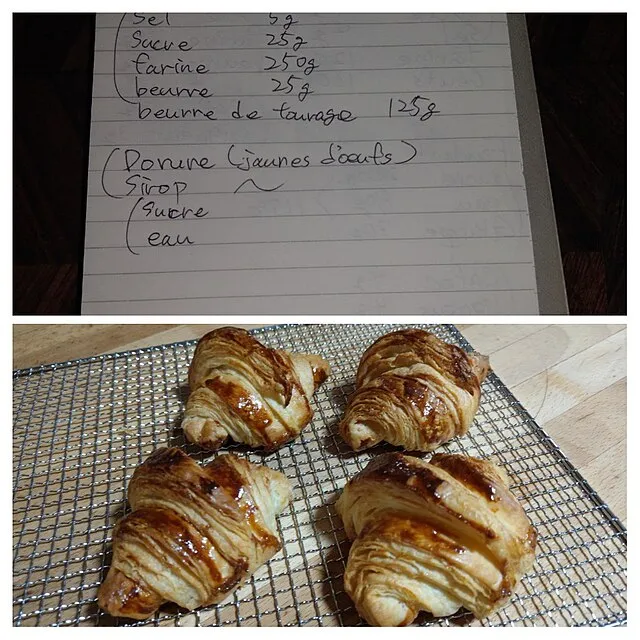 Sel 5g
Sucre 25g
farine 250g
beurre 25g
beurre de tourage 125g
Dorure (jaunes d'œufs)
Sirop ~
sucre
eau